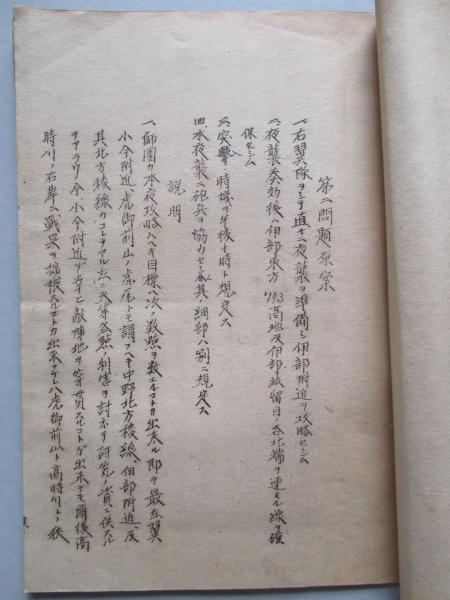 第二問題原案
一、右翼隊ヲシテ直チニ夜襲ヲ準備シ伊部附近ヲ攻略セシム
二、夜襲奏効後ハ伊部東方143高地及伊部、留目ノ各北端ヲ連ヌル線ヲ確
保セシム
三、突撃ノ時機ハ午後十時ト規定ス
四、本夜襲ニ砲兵ヲ協力セシメ其ノ細部ハ別ニ規定ス
説明
一、師團カ本夜攻略スヘキ目標ハ次ノ数點ヲ数エルコトカ出来ル即チ最左翼
小今附近、虎御前山ノ虎尾トモ謂フヘキ中野北方稜線、伊部附近、及
其北方稜線カコレテアル 之等各點ノ利害ヲ討ネテ研究ノ資ニ供スル
テアラウ 今小今附近テ幸ヒ敵陣地ヲ突貫スルコトガ出来テモ爾後高
時川ノ右岸ニ戰果ヲ擴張スルコトカ出来ナケレハ虎御前山ト高時川トノ狹